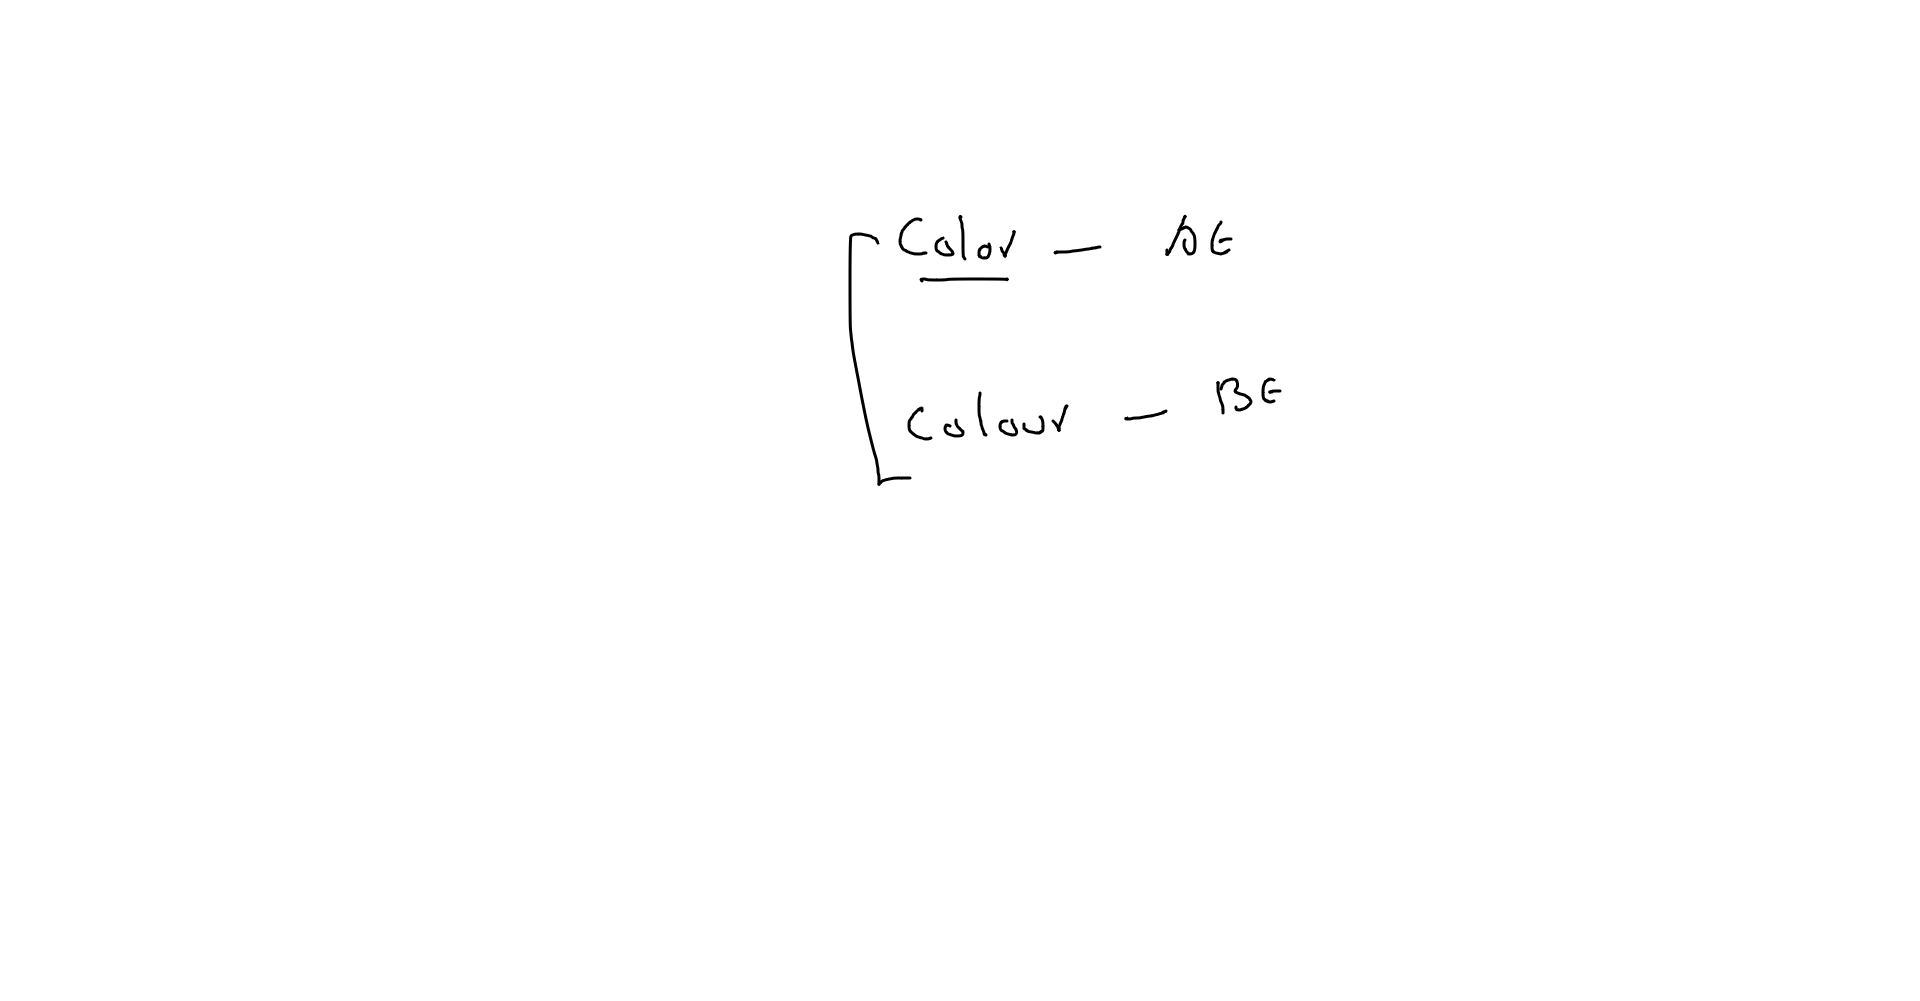 Color — AE
Colour — BE